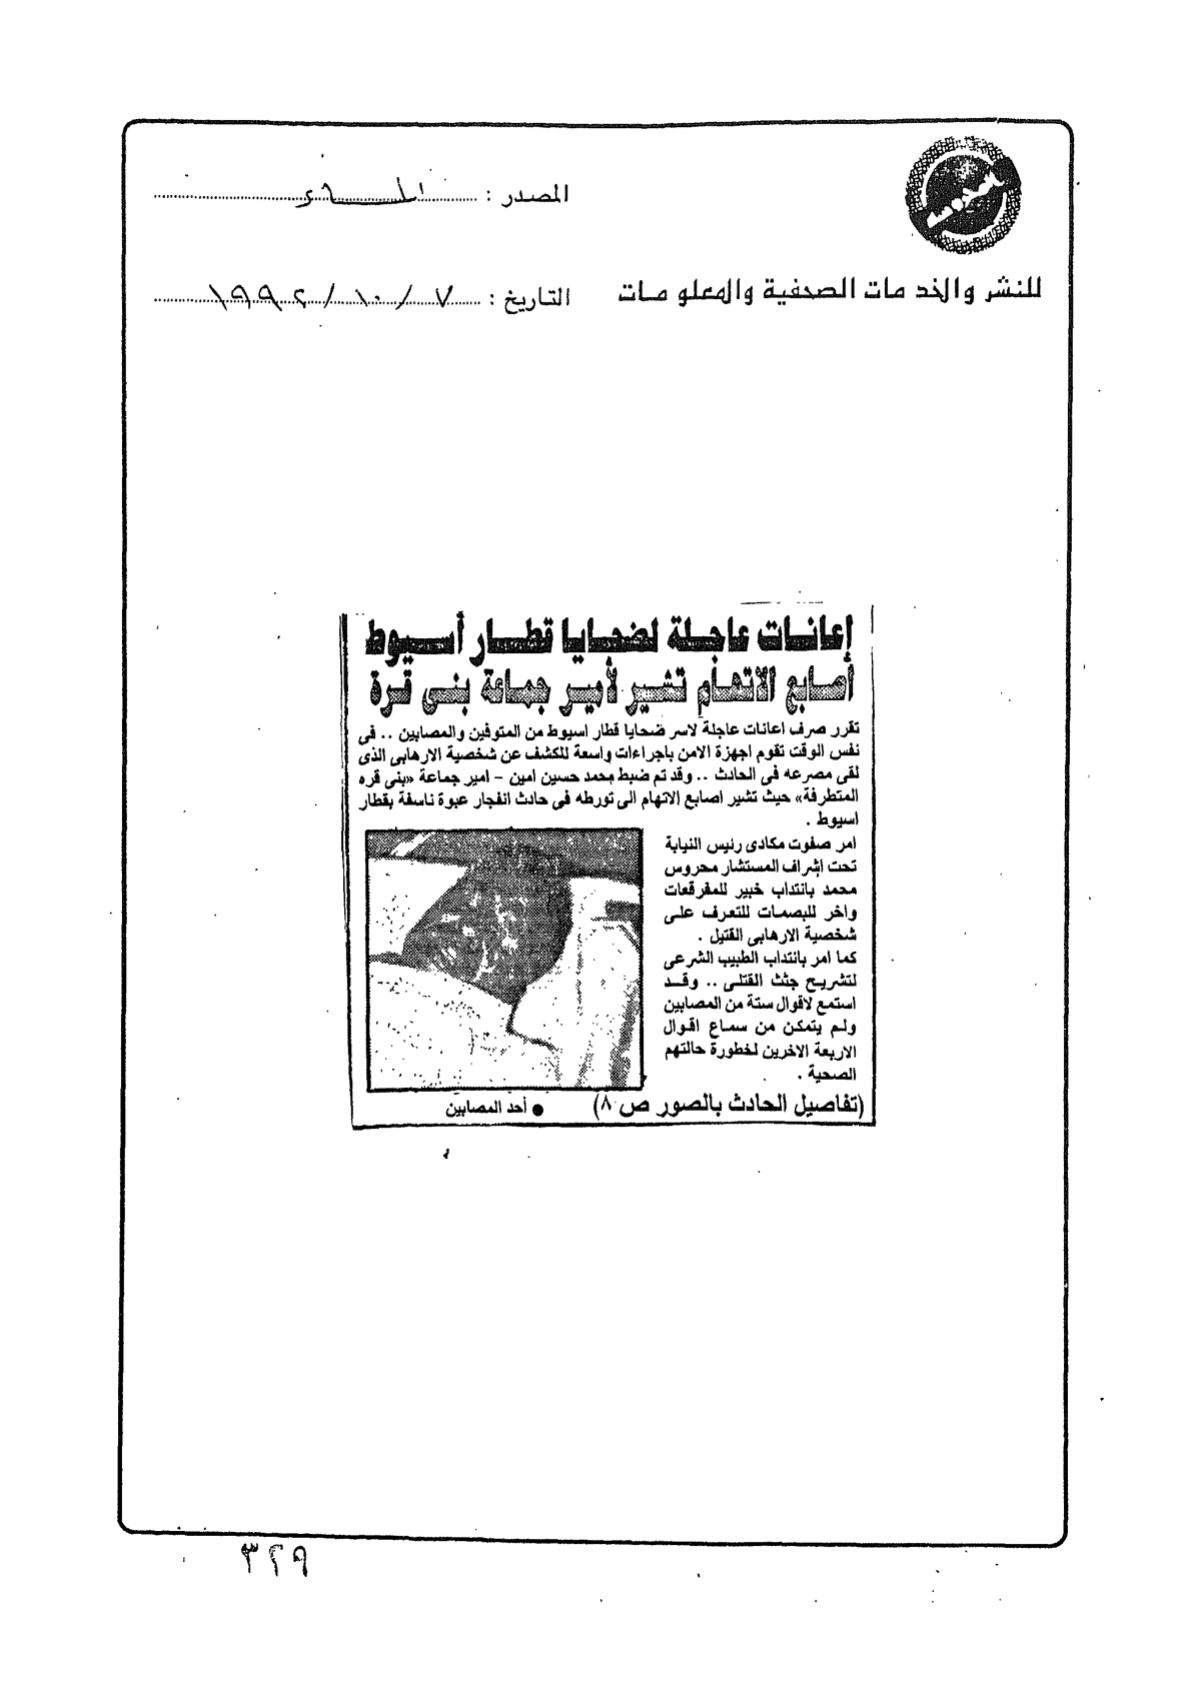 المصدر :
للنشر والخدمات الصحفية والمعلومات
التاريخ : ٧ / ١٠ / ١٩٩٢
إعانات عاجلة لضحايا قطار أسيوط
أصابع الاتهام تشير لأمير جماعة بنى قرة
تقرر صرف اعانات عاجلة لاسر ضحايا قطار اسيوط من المتوفين والمصابين .. فى
نفس الوقت تقوم اجهزة الامن باجراءات واسعة للكشف عن شخصية الارهابى الذى
لقى مصرعه فى الحادث .. وقد تم ضبط محمد حسين امين - امير جماعة «بنى قره
المتطرفة» حيث تشير اصابع الاتهام الى تورطه فى حادث انفجار عبوة ناسفة بقطار
اسيوط .
امر صفوت مكادى رئيس النيابة
تحت إشراف المستشار محروس
محمد بانتداب خبير للمفرقعات
واخر للبصمات للتعرف على
شخصية الارهابى القتيل .
كما امر بانتداب الطبيب الشرعى
لتشريح جثث القتلى .. وقد
استمع لاقوال ستة من المصابين
ولم يتمكن من سماع اقوال
الاربعة الاخرين لخطورة حالتهم
الصحية .
(تفاصيل الحادث بالصور ص ٨)
● أحد المصابين
٣٢٩